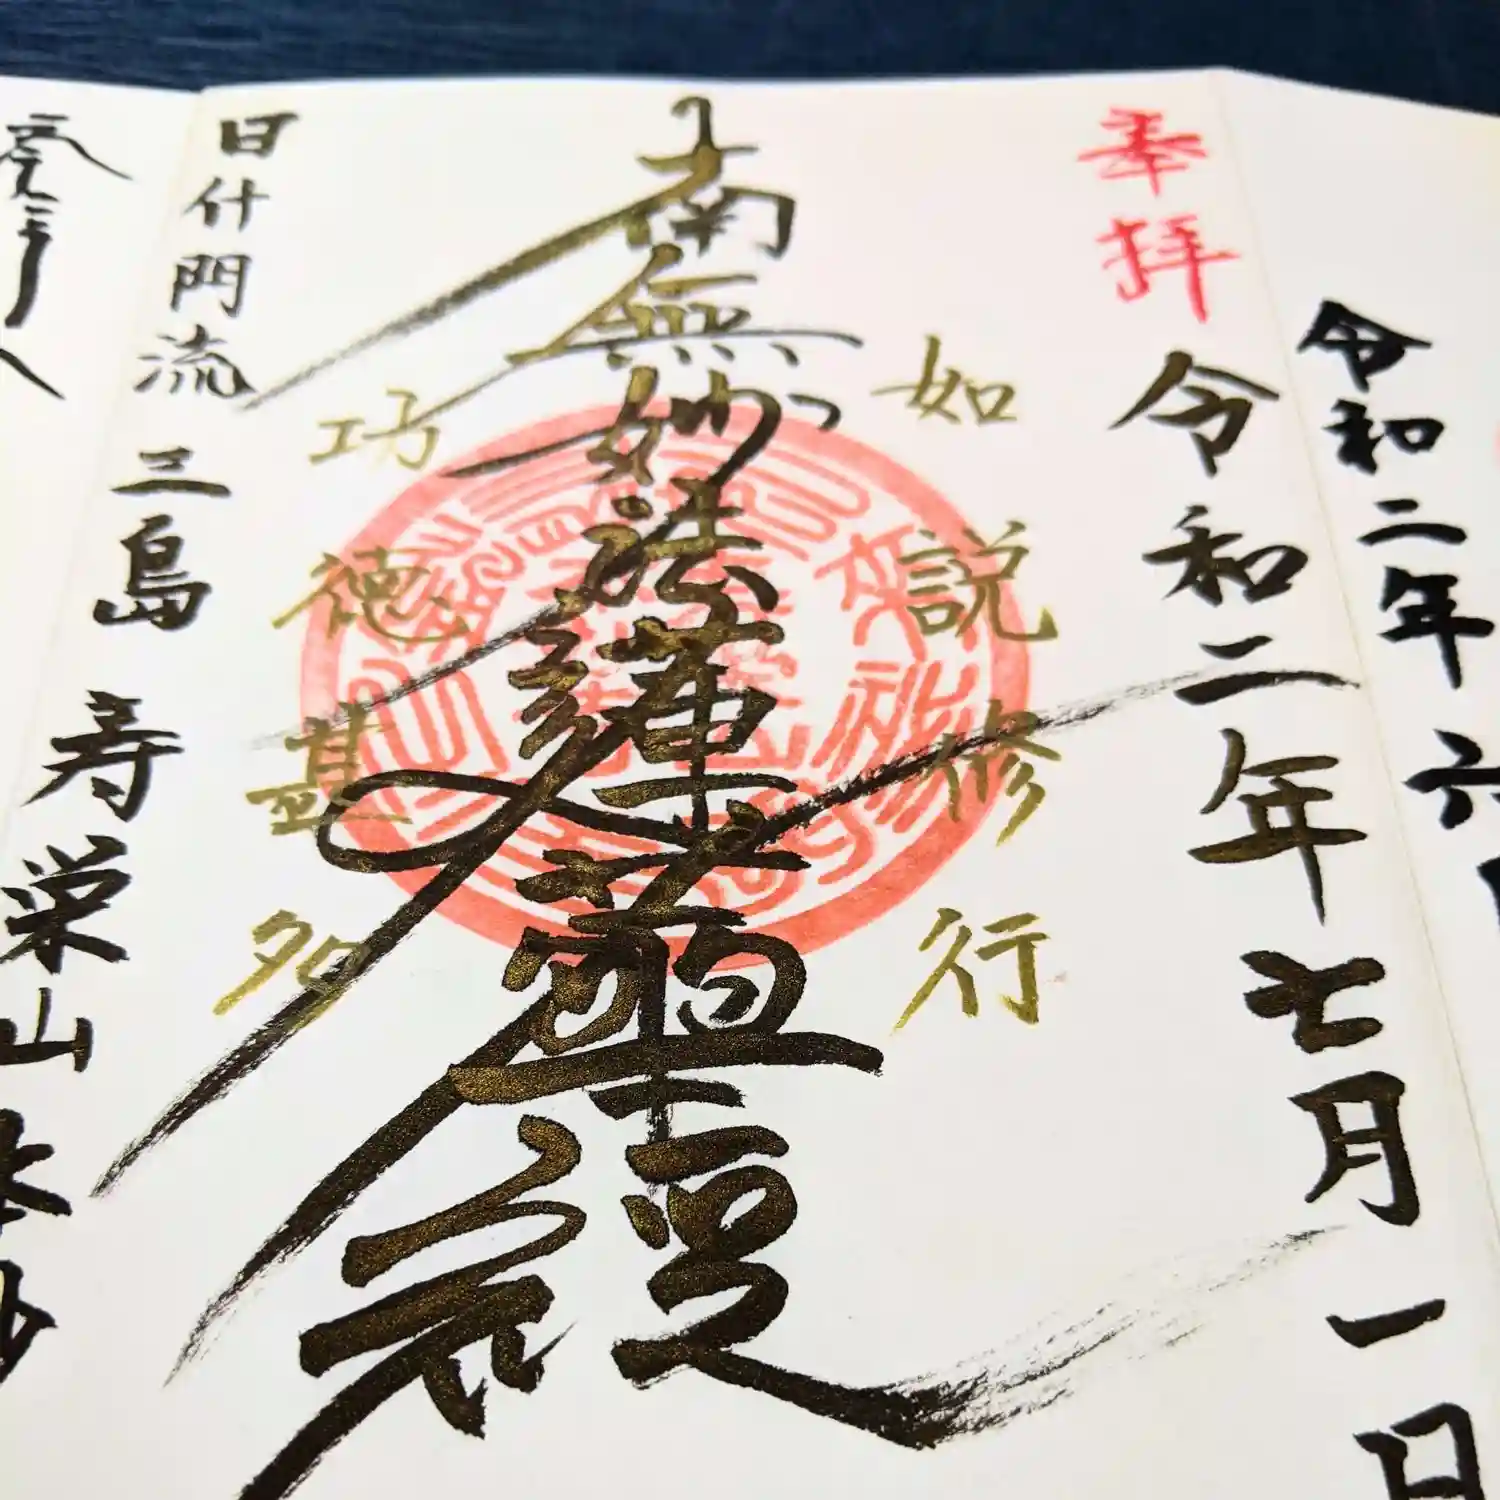 令和二年六
奉拝
令和二年七月一日
如説修行
南無妙法蓮華経
功徳甚多
日什門流 三島 寿栄山 本妙